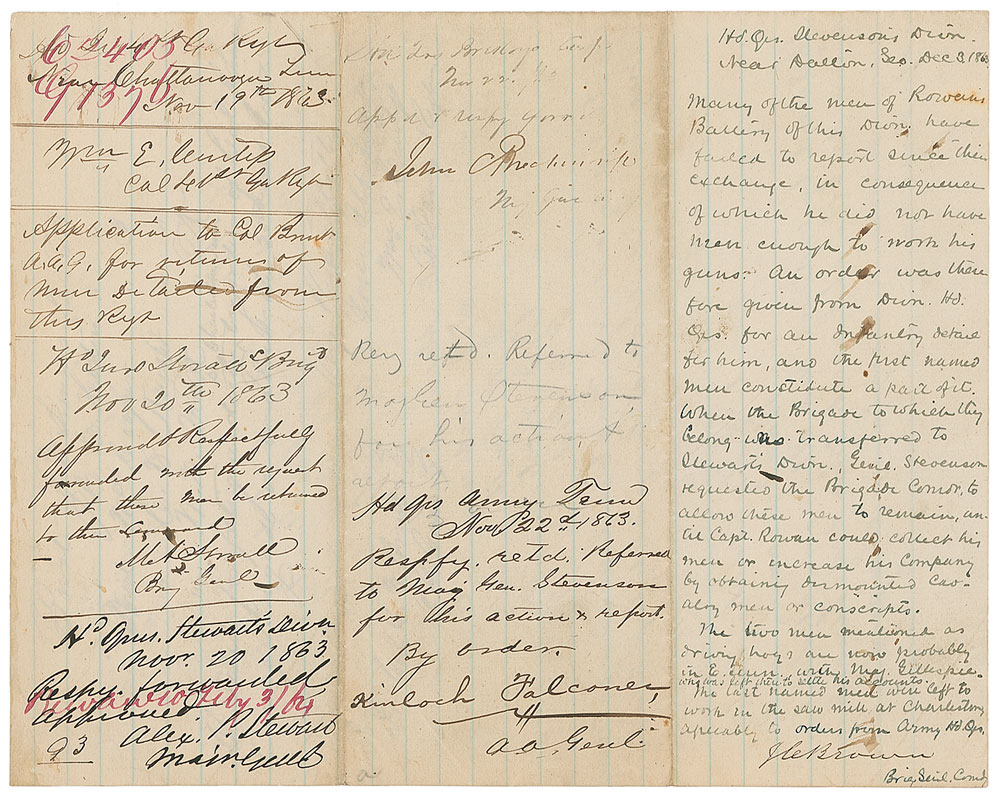 Hd Qrs Ga Regt
Near Chattanooga Tenn
Nov 19th 1863.
Wm E. Curtiss
Col 41st Ga Regt
Application to Col Brent
A.A.G. for returns of
men Detailed from
this Regt
Hd Qrs Stovalls Brig
Nov 20th 1863
Approved & Respectfully
forwarded with the request
that these men be returned
to their Command
M A Stovall
Brig Genl
Hd Qrs. Stewart's Divn.
Nov. 20 1863
Respy. forwarded
approved.
Alex. P. Stewart
Maj. Genl
93
Hd Qrs Breckinridge
Nov 22
Appd & respy forwd
John C Breckinridge
Maj Gen
Resy retd. Referred to
Maj Gen Stevenson
for his action &
report
Hd Qrs Army Tenn
Nov 22d 1863.
Respfy. retd. Referred
to Maj Gen. Stevenson
for his action & report.
By order.
Kinloch Falconer,
A A Genl.
Hd. Qrs. Stevenson's Divn.
Near Dalton, Geo. Dec 3, 1863
Many of the men of Rowans
Battery of this Divn. have
failed to report since their
exchange, in consequence
of which he did not have
men enough to work his
guns. An order was there
fore given from Divn. Hd.
Qrs. for an Infantry detail
for him, and the first named
men constitute a part of it.
When the Brigade to which they
belong was transferred to
Stewarts Divn., Genl. Stevenson
requested the Brigade Comdr. to
allow these men to remain, un-
til Capt. Rowan could collect his
men or increase his Company
by obtaining dismounted Cav-
alry men or conscripts.
The two men mentioned as
driving hogs are now probably
in E. Tenn. with Maj. Gillespie
who was left there to settle his accounts.
The last named men were left to
work in the saw mill at Charleston
agreeably to orders from Army Hd. Qrs.
J C Brown
Brig. Genl. Comdg